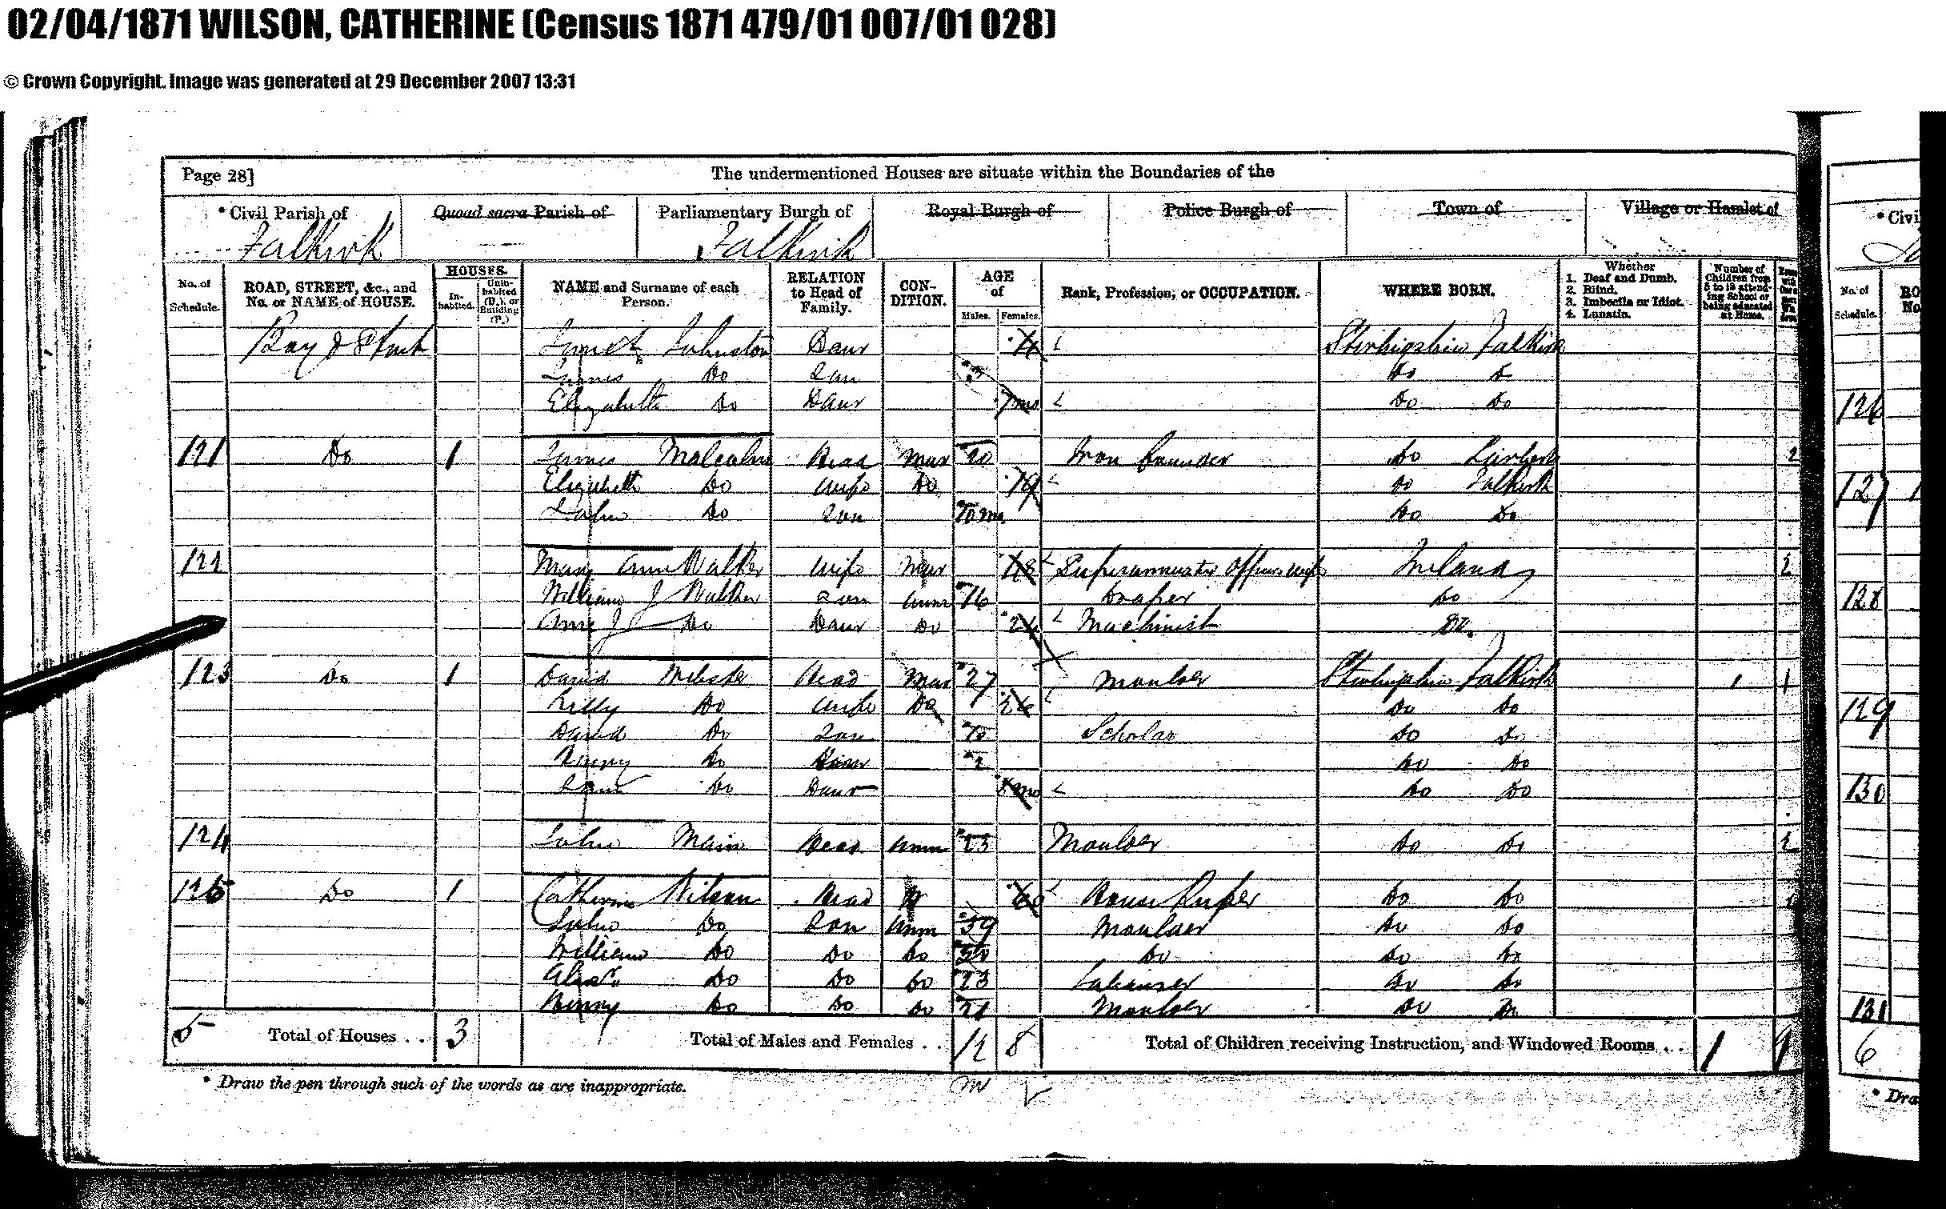 02/04/1871 WILSON, CATHERINE (Census 1871 479/01 007/01 028)
© Crown Copyright. Image was generated at 29 December 2007 13:31
Page 28] The undermentioned Houses are situate within the Boundaries of the
* Civil Parish of Quoad sacra Parish of Parliamentary Burgh of Royal Burgh of Police Burgh of Town of Village or Hamlet of
Falkirk Falkirk
No. of Schedule. ROAD, STREET, &c., and No. or NAME of HOUSE. HOUSES. Inhabited. Uninhabited (U.), or Building (B.) NAME and Surname of each Person. RELATION to Head of Family. CONDITION. AGE of Males. Females. Rank, Profession, or OCCUPATION. WHERE BORN. Whether 1. Deaf and Dumb. 2. Blind. 3. Imbecile or Idiot. 4. Lunatic. Number of Children from 5 to 13 attending School or being educated at Home.
Janet Johnston Daur Stirlingshire Falkirk
James Do Son Do Do
Elizabeth Do Daur Do Do
121 Do 1 James Malcolm Head Mar 20 Iron founder Do Larbert 2
Elizabeth Do Wife Do 19 Do Falkirk
John Do Son 10 mo Do Do
122 Mary Ann Walker Wife Mar Superannuated Officers wife Ireland 2
William J Walker Son Unm 16 Draper Do
Ann J Do Daur Do Machinist Do
123 Do 1 David Head Mar 27 Moulder Stirlingshire Falkirk 1 1
Do Wife Do 26 Do Do
David Do Son Scholar Do Do
Henry Do 2 Do Do
Do Daur Do Do
124 John Main Head Unm 23 Moulder Do Do 2
125 Do 1 Catherine Wilson Head W 60 House Keeper Do Do
John Do Son Unm 39 Moulder Do Do
William Do Do Do Do Do Do
Alexr. Do Do Do 23 Labourer Do Do
Henry Do Do Do 21 Moulder Do Do
5 Total of Houses . . 3 Total of Males and Females . . 12 8 Total of Children receiving Instruction, and Windowed Rooms . . 1 9
* Draw the pen through such of the words as are inappropriate.
M
* Civi
No. of Schedule.
126
127 1
128
129
130
131
6
* Dra